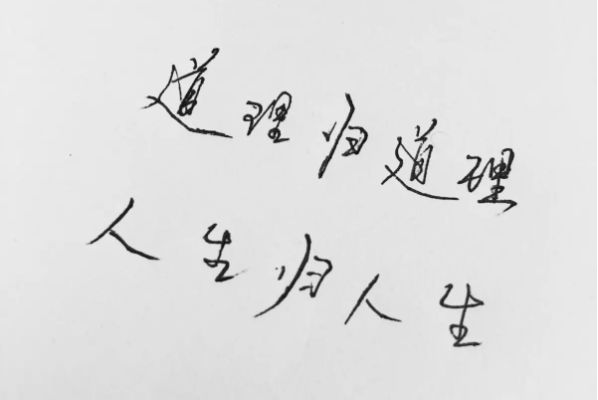 道理归道理
人生归人生